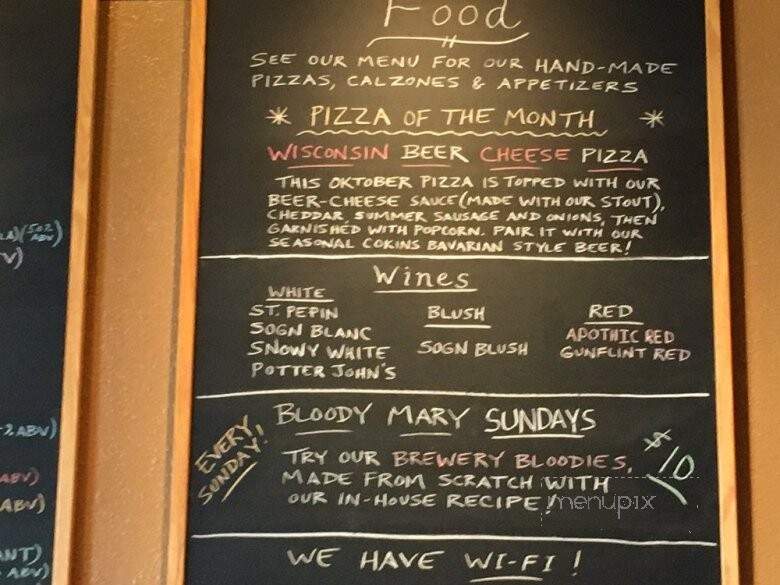 Food
SEE OUR MENU FOR OUR HAND-MADE
PIZZAS, CALZONES & APPETIZERS
* PIZZA OF THE MONTH *
WISCONSIN BEER CHEESE PIZZA
THIS OKTOBER PIZZA IS TOPPED WITH OUR
BEER-CHEESE SAUCE (MADE WITH OUR STOUT),
CHEDDAR, SUMMER SAUSAGE AND ONIONS, THEN
GARNISHED WITH POPCORN. PAIR IT WITH OUR
SEASONAL COKINS BAVARIAN STYLE BEER!
Wines
WHITE
ST. PEPIN
SOGN BLANC
SNOWY WHITE
POTTER JOHN'S
BLUSH
SOGN BLUSH
RED
APOTHIC RED
GUNFLINT RED
BLOODY MARY SUNDAYS
EVERY
SUNDAY!
TRY OUR BREWERY BLOODIES,
MADE FROM SCRATCH WITH
OUR IN-HOUSE RECIPE!
$10
menupix
WE HAVE WI-FI!
ABV)
ABV)
ABV)
ABV)